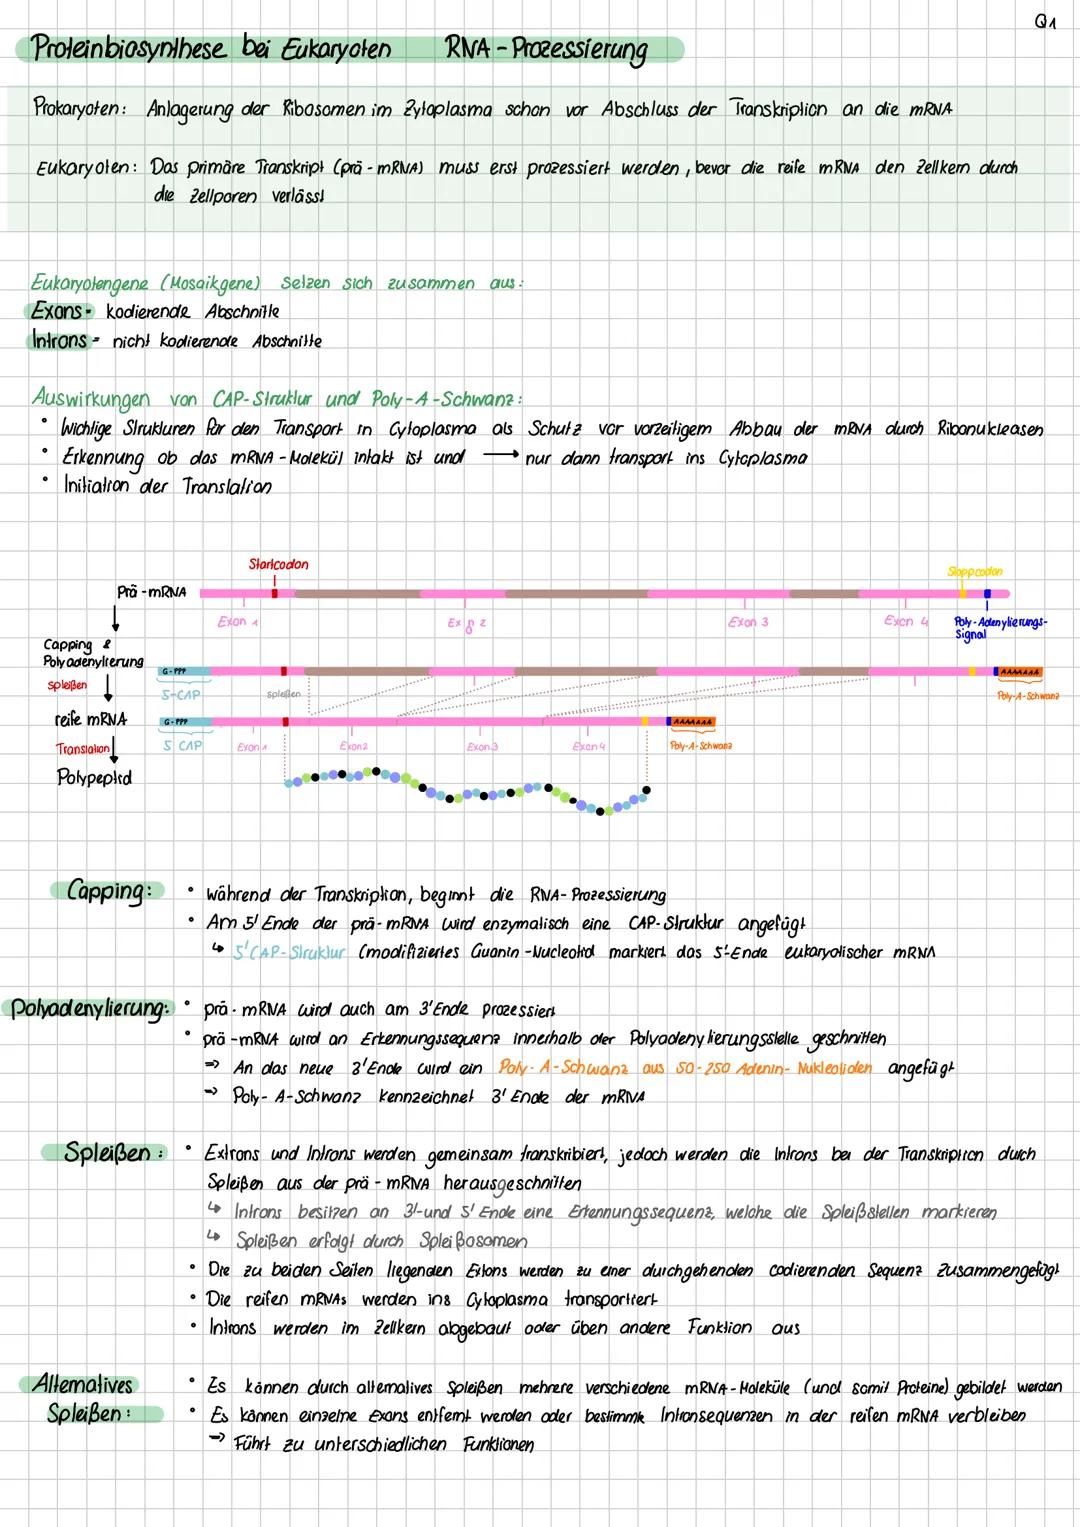 Q1
Proteinbiosynthese bei Eukaryoten RNA-Prozessierung
Prokaryoten: Anlagerung der Ribosomen im Zytoplasma schon vor Abschluss der Transkription an die mRNA
Eukaryoten: Das primäre Transkript (prä-mRNA) muss erst prozessiert werden, bevor die reife mRNA den Zellkern durch
die Zellporen verlässt
Eukaryotengene (Mosaikgene) setzen sich zusammen aus:
Exons = kodierende Abschnitte
Introns = nicht kodierende Abschnitte
Auswirkungen von CAP-Struktur und Poly-A-Schwanz:
• Wichtige Strukturen für den Transport in Cytoplasma als Schutz vor vorzeitigem Abbau der mRNA durch Ribonukleasen
• Erkennung ob das mRNA-Molekül intakt ist und → nur dann transport ins Cytoplasma
• Initiation der Translation
Startcodon
Stoppcodon
Prä-mRNA
Exon 1 Exon 2 Exon 3 Exon 4 Poly-Adenylierungs-
Signal
Capping &
Polyadenylierung
G-PPP AAAAAAA
spleißen
5-CAP spleißen Poly-A-Schwanz
reife mRNA G-PPP AAAAAAA
Translation 5 CAP Exon 1 Exon 2 Exon 3 Exon 4 Poly-A-Schwanz
Polypeptid
Capping: • Während der Transkription, beginnt die RNA-Prozessierung
• Am 5' Ende der prä-mRNA wird enzymatisch eine CAP-Struktur angefügt
↳ 5'CAP-Struktur (modifiziertes Guanin-Nucleotid markiert das 5'-Ende eukaryotischer mRNA
Polyadenylierung: • prä-mRNA wird auch am 3'Ende prozessiert
• prä-mRNA wird an Erkennungssequenz innerhalb der Polyadenylierungsstelle geschnitten
⇒ An das neue 3'Ende wird ein Poly-A-Schwanz aus 50-250 Adenin-Nukleotiden angefügt
⇒ Poly-A-Schwanz kennzeichnet 3' Ende der mRNA
Spleißen: • Extrons und Introns werden gemeinsam transkribiert, jedoch werden die Introns bei der Transkription durch
Spleißen aus der prä-mRNA herausgeschnitten
↳ Introns besitzen an 3'-und 5' Ende eine Erkennungssequenz, welche die Spleißstellen markieren
↳ Spleißen erfolgt durch Spleißosomen
• Die zu beiden Seiten liegenden Extons werden zu einer durchgehenden codierenden Sequenz zusammengefügt
• Die reifen mRNAs werden ins Cytoplasma transportiert
• Introns werden im Zellkern abgebaut oder üben andere Funktion aus
Alternatives • Es können durch alternatives Spleißen mehrere verschiedene mRNA-Moleküle (und somit Proteine) gebildet werden
Spleißen: • Es können einzelne Exons entfernt werden oder bestimmte Intronsequenzen in der reifen mRNA verbleiben
⇒ Führt zu unterschiedlichen Funktionen